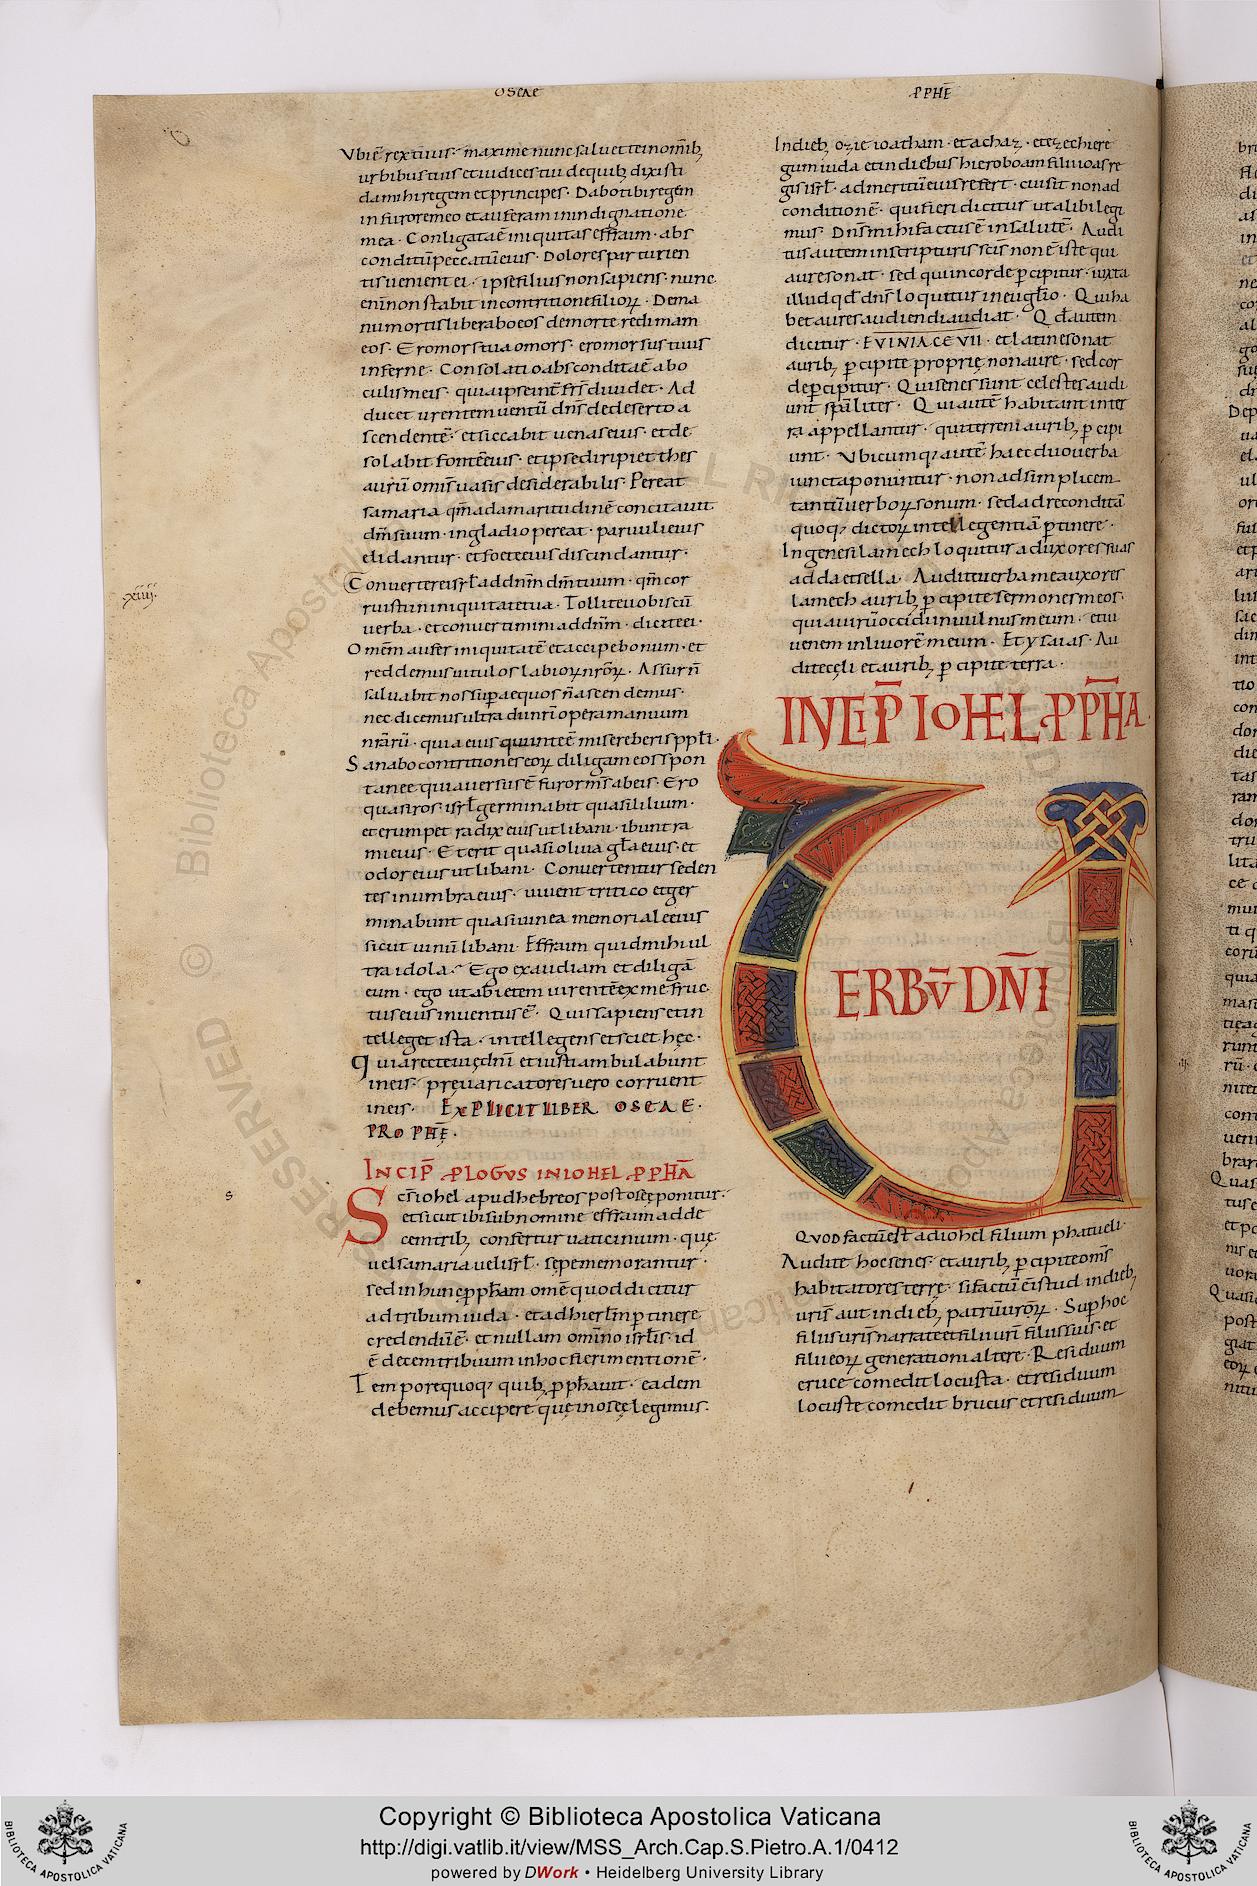 OSEAE
PPHĒ
Vbiē rex tuus· maxime nunc saluet te in om̄ib;
urbibus tuis et iudices tui de quib; dixisti
da mihi regem et principes· Dabo tibi regem
in furore meo et auferam in indignatione
mea· Conligata ē iniquitas effraim· abs
conditū peccatū eius· Dolores parturien
tis uenient ei· ipse filius non sapiens· nunc
enī non stabit in contritione filioꝝ· De ma
nu mortis liberabo eos de morte redimam
eos· Ero mors tua o mors· ero morsus tuus
inferne· Consolatio abscondita ē ab o
culis meis· quia ipse int̄ frs̄ diuidet· Ad
ducet urentem uentū dns̄ de deserto a
scendentē· et siccabit uenas eius· et de
solabit fontē eius· et ipse diripiet thes
aurū omīs uasis desiderabilis· Pereat
samaria qm̄ ad amaritudinē concitauit
dm̄ suum· in gladio pereat· paruuli eius
elidantur· et foetę eius discindantur·
xiiii·
Conuertere isrł ad dn̄m dm̄ tuum· qm̄ cor
ruisti in iniquitate tua· Tollite uobiscū
uerba· et conuertimini ad dn̄m· dicite ei·
Omēm aufer iniquitatē et accipe bonum· et
reddemus uitulos labioꝝ nr̄oꝝ· Assur n̄
saluabit nos sup̱ aequos n̄ ascendemus·
nec dicemus ultra dii nr̄i opera manuum
nr̄arū· quia eius qui in te ē misereberis pp̱łi·
Sanabo contritiones eoꝝ diligam eos spon
tanee quia uersus ē furor ms̄ ab eis· Ero
quasi ros isrł germinabit quasi lilium·
et erumpet radix eius ut libani· ibunt ra
mi eius· Et erit quasi oliua gła eius· et
odor eius ut libani· Conuertentur seden
tes in umbra eius· uiuent tritico et ger
minabunt quasi uinea memoriale eius
sicut uinū libani· Effraim quid mihi ul
tra idola· Ego exaudiam et diligā
eum· ego ut abietem uirentē ex me fruc
tus eius inuentus ē· Quis sapiens et in
telleget ista· intellegens et sciet hęc·
Quia rectę uię dn̄i et iusti ambulabunt
in eis· pręuaricatores uero corruent
in eis· EXPLICIT LIBER OSEAE·
PROPHĘ·
INCIP̄ PLOGVS IN IOHEL PPHĀ
s
Scs̄ iohel apud hebreos post osęę ponitur·
et sicut ibi sub nomine effraim a dde
cem trib; confertur uaticinium· quę
uel samaria uel isrł· sępe memorantur·
sed in hunc p̱ph̄am omē quod dicitur
ad tribum iuda· et ad hierłm p̱tinere
credendū ē· et nullam om̄ino isrłis· id
ē decem tribuum in hoc fieri mentionē·
Tempore quoq; quib; p̱ph̄auit· eadem
debemus accipere quę in osęę legimus·
In dieb; ozie ioatham· et achaz· et ezechie re
gum iuda et in diebus hieroboam filii ioas re
gis isrł· ad meritū eius refert· cui sit non ad
conditionē· qui fieri dicitur ut alibi legi
mus· Dns̄ mihi factus ē in salutē· Audi
tus autem in scripturis scīs non ē iste qui
aure sonat· sed qui in corde p̱cipitur· iuxta
illud qd̄ dns̄ loquitur in euglio· Qui ha
bet aures audiendi audiat· Qd̄ autem
dicitur· EVINIACEVII· et latine sonat
aurib; p̱cipite proprię non aure· sed cor
de p̱cipitur· Qui senes sunt celestes audi
unt spāliter· Qui autē habitant in ter
ra appellantur· qui terreni aurib; p̱cipi
unt· Vbicumq; autē haec duo uerba
iuncta ponuntur· non ad simplicem
tantū uerboꝝ sonum· sed ad reconditā
quoq; dictoꝝ intellegentiā p̱tinere·
In genesi lamech loquitur ad uxores suas
adda et sella· Audite uerba mea uxores
lamech aurib; p̱cipite sermones meos·
quia uirū occidi in uulnus meum· et iu
uenem in liuorē meum· Et ysaias· Au
dite cęli et aurib; p̱cipite terra·
INCIP̄ IOHEL PP̄HA·
VERBV̄ DN̄I
QVOD factū est ad iohel filium phatueli·
Audite hoc senes· et aurib; p̱cipite oms̄
habitatores terrę· si factū ē istud in dieb;
uris̄ aut in dieb; patrū ur̄oꝝ· Sup̱ hoc
filiis uris̄ narrate et filii ur̄i filiis suis et
filii eoꝝ generationi alterę· Residuum
erucę comedit locusta· et residuum
locustę comedit brucus et residuum
Copyright © Biblioteca Apostolica Vaticana
http://digi.vatlib.it/view/MSS_Arch.Cap.S.Pietro.A.1/0412
powered by DWork • Heidelberg University Library
BIBLIOTECA APOSTOLICA VATICANA
BIBLIOTECA APOSTOLICA VATICANA